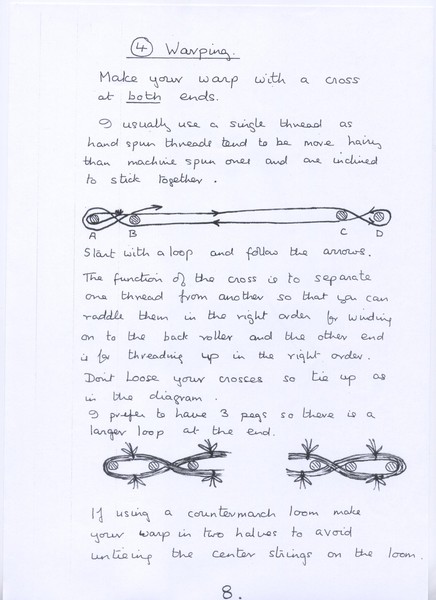 4 Warping.
Make your warp with a cross
at both ends.
I usually use a single thread as
hand spun threads tend to be more hairy
than machine spun ones and are inclined
to stick together.
A B C D
Start with a loop and follow the arrows.
The function of the cross is to separate
one thread from another so that you can
raddle them in the right order for winding
on to the back roller and the other end
is for threading up in the right order.
Dont loose your crosses so tie up as
in the diagram.
I prefer to have 3 pegs so there is a
larger loop at the end.
If using a countermarch loom make
your warp in two halves to avoid
untieing the center strings on the loom.
8.